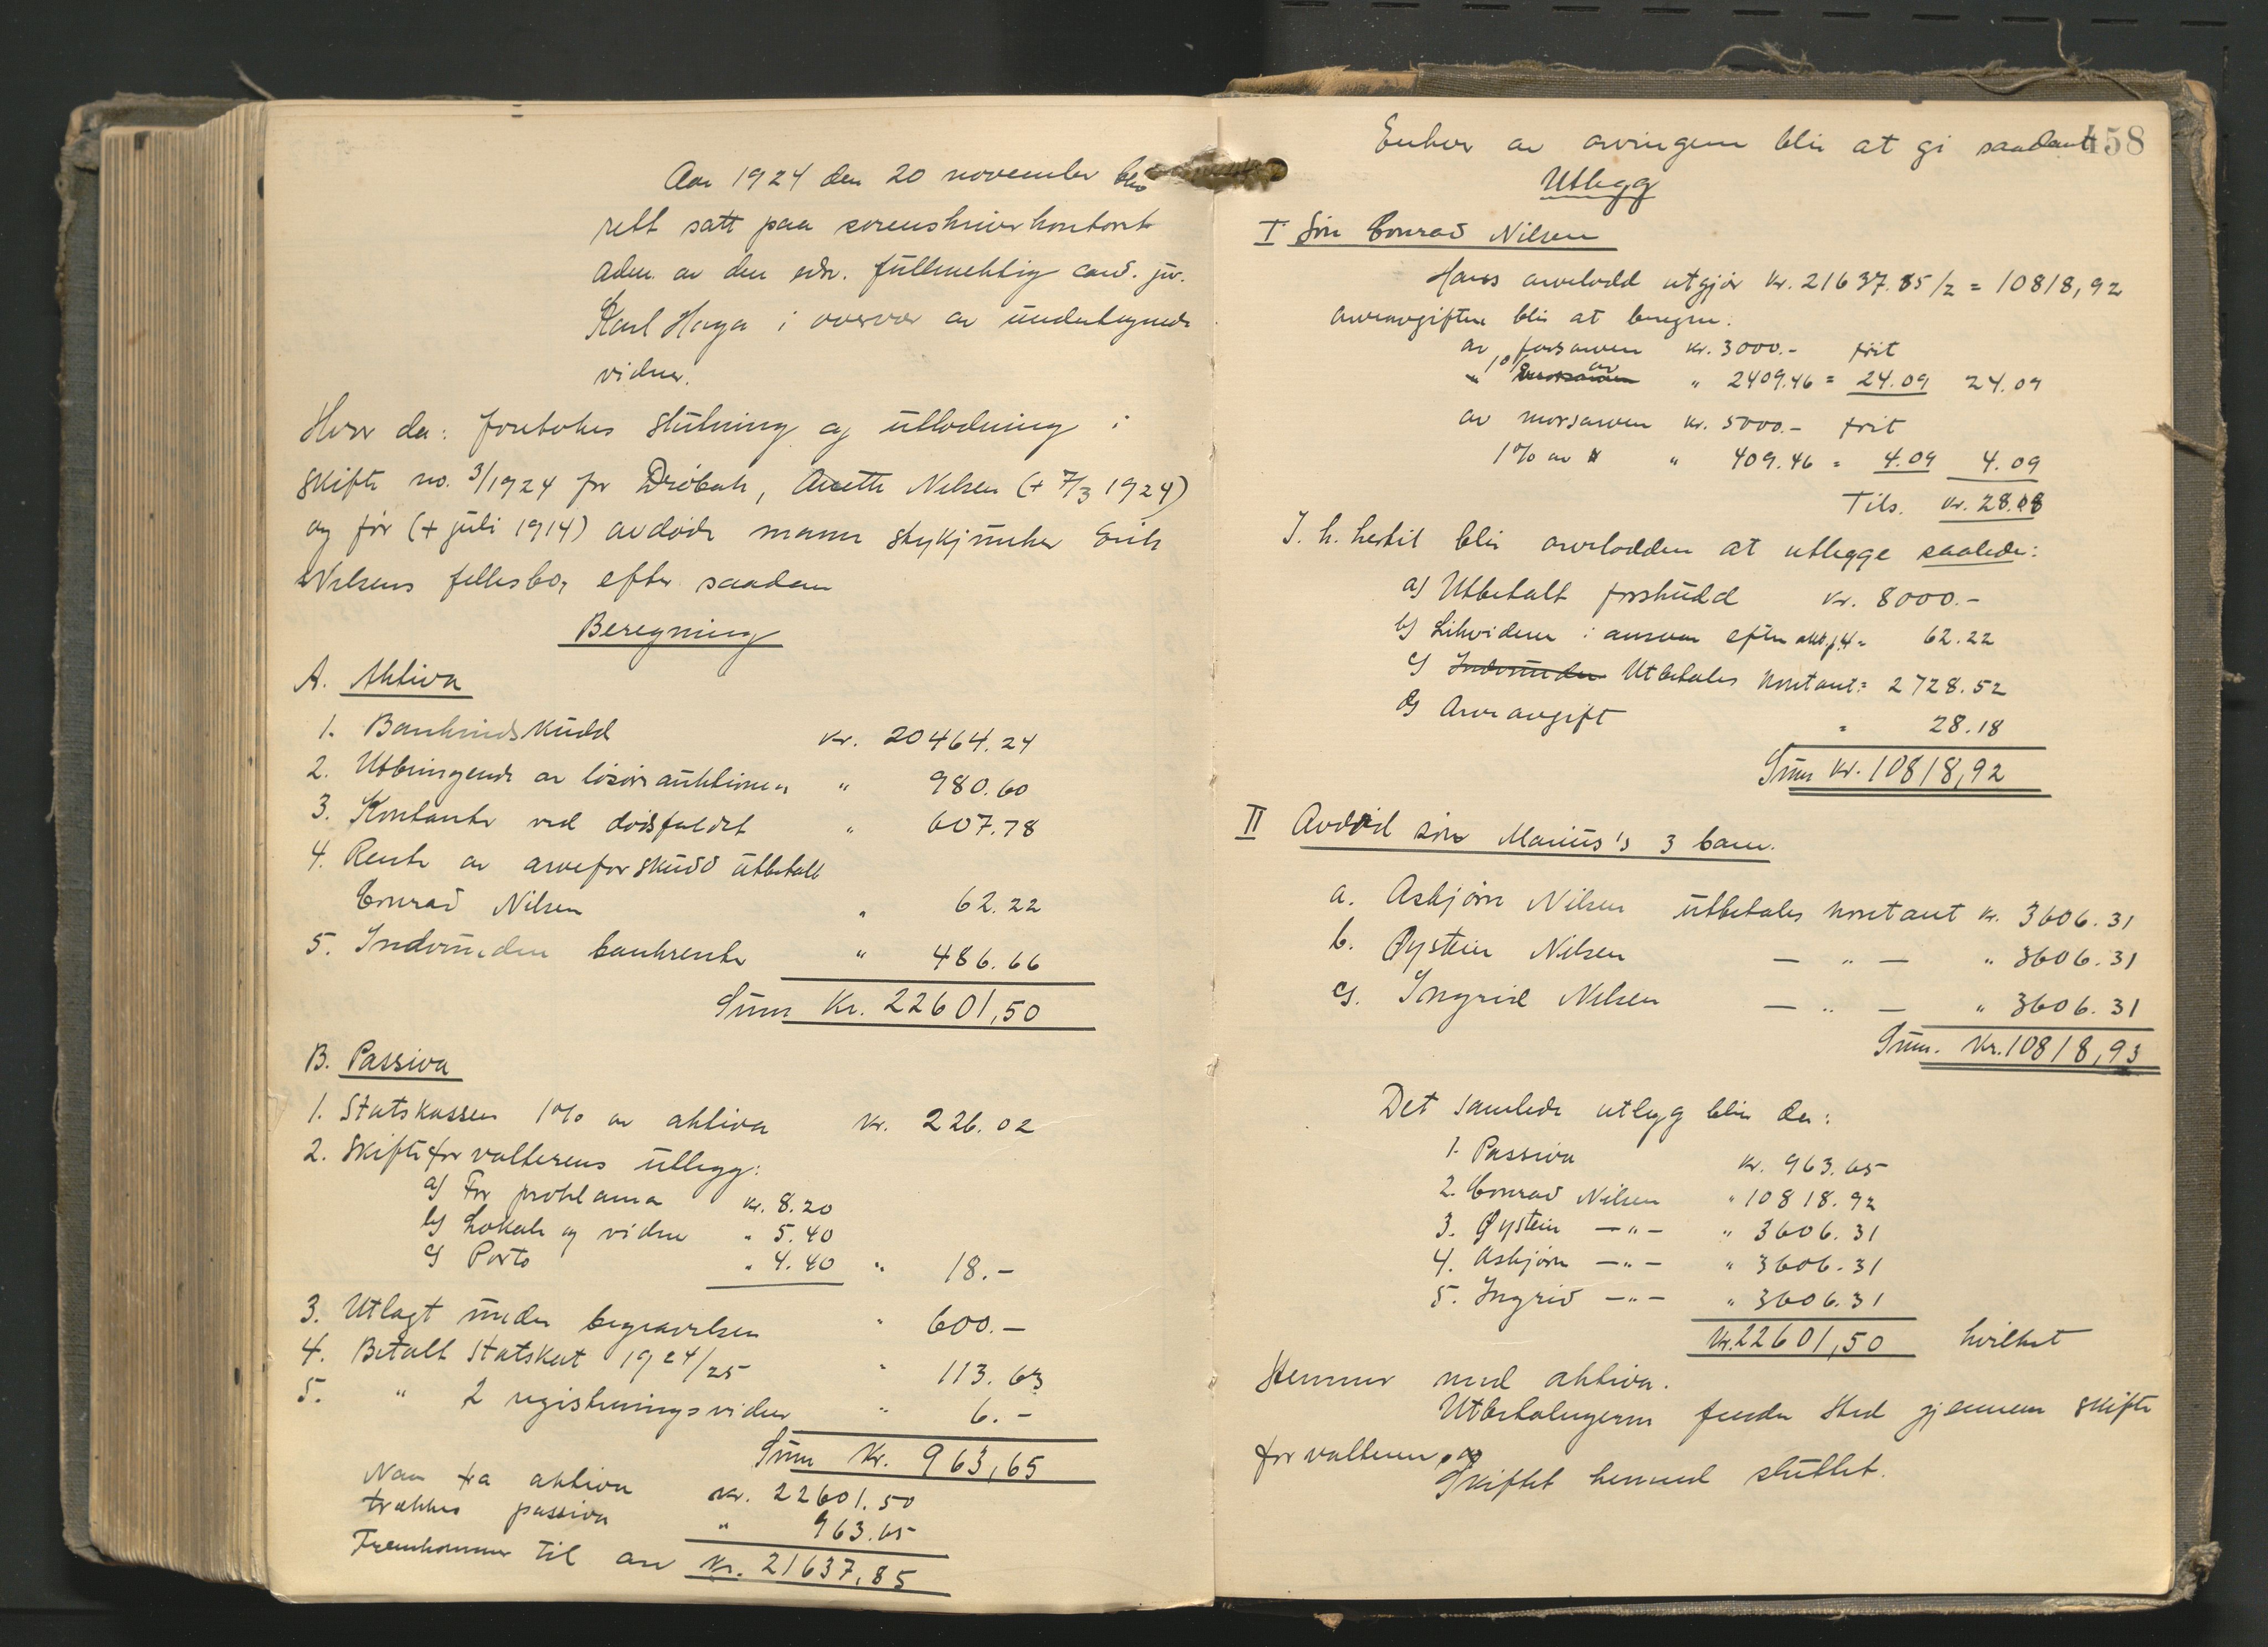 Aar 1924 den 20 november blev
rett satt paa sorenskriverkontoret
adm. av den edsv. fullmektig cand. jur.
Karl Haga i overvær av undertegnede
vidner.
Hvor da: foretokes slutning og utlodning i
skifte no. 3/1924 for Drøbak, Anette Nilsen (+ 7/3 1924)
og før (+ juli 1914) avdøde mann stykjunker Erik
Nilsens fellesbo, efter saadan
Beregning
A. Aktiva
1. Bankindskudd kr. 20464.24
2. Utbringende av løsøreauktionen " 980.60
3. Kontanter ved dødsfaldet " 607.78
4. Rente av arveforskudd utbetalt
Conrad Nilsen " 62.22
5. Indvunden bankrente " 486.66
Sum Kr. 22601,50
B. Passiva
1. Statskassen 1% av aktiva kr. 226.02
2. Skifteforvalterens utlegg:
a) For proklama kr. 8.20
b) Lokale og vidner " 5.40
c) Porto " 4.40 " 18.-
3. Utlagt under begravelsen " 600.-
4. Betalt Statskat 1924/25 " 113.63
5. " 2 registreringsvidner " 6.-
Sum Kr. 963,65
Naar fra aktiva kr. 22601.50
trækkes passiva " 963.65
Fremkommer til arv kr. 21637,85
458
Enhver av arvingerne blir at gi saadant
Utlegg
I Søn Conrad Nilsen
Hans arvelodd utgjør kr. 21637.85/2 = 10818,92
Arveavgiften blir at beregne:
av farsarven kr. 3000.- frit
" 1% av " 2409.46 = 24.09 24.09
av morsarven kr. 5000.- frit
1% av " 409.46 = 4.09 4.09
Tils. kr. 28.18
I. h. hertil blir arvelodden at utlegge saaledes:
a) Utbetalt forskudd kr. 8000.-
b) Likvideres i ansvar efter akt. p. 4 = 62.22
c) Indvunden Utbetales kontant = 2728.52
d) Arveavgift = 28.18
Sum kr. 10818,92
II Avdød søn Marius's 3 barn.
a. Asbjørn Nilsen utbetales kontant kr. 3606.31
b. Øystein Nilsen — " — " 3606.31
c). Ingrid Nilsen — " — " 3606.31
Sum. Kr. 10818,93
Det samlede utlegg blir da:
1. Passiva kr. 963.65
2. Conrad Nilsen " 10818.92
3. Øystein —"— " 3606.31
4. Asbjørn —"— " 3606.31
5. Ingrid —"— " 3606.31
kr. 22601,50 hvilket
stemmer med aktiva.
Utbetalingerne finder sted gjennem skifte
forvalteren.
Skiftet hermed sluttet.